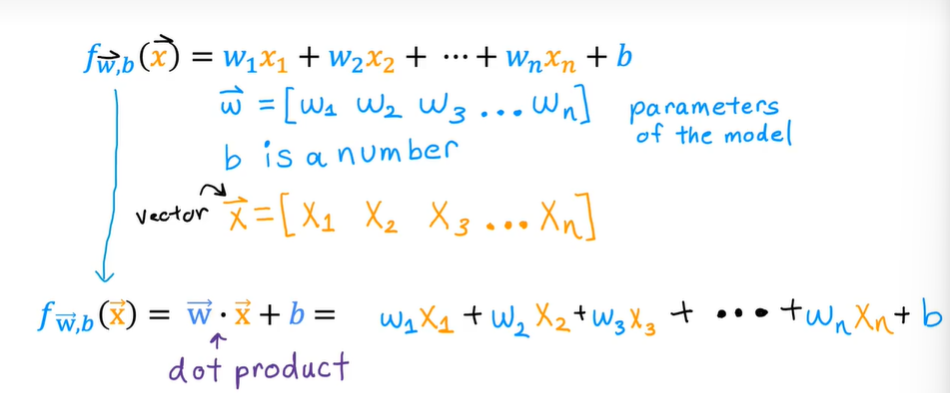 f_{w⃗,b}(x⃗) = w₁x₁ + w₂x₂ + ⋯ + wₙxₙ + b
w⃗ = [w₁ w₂ w₃ ... wₙ] parameters of the model
b is a number
vector x⃗ = [x₁ x₂ x₃ ... xₙ]
f_{w⃗,b}(x⃗) = w⃗ · x⃗ + b = w₁x₁ + w₂x₂ + w₃x₃ + ••• + wₙxₙ + b
dot product